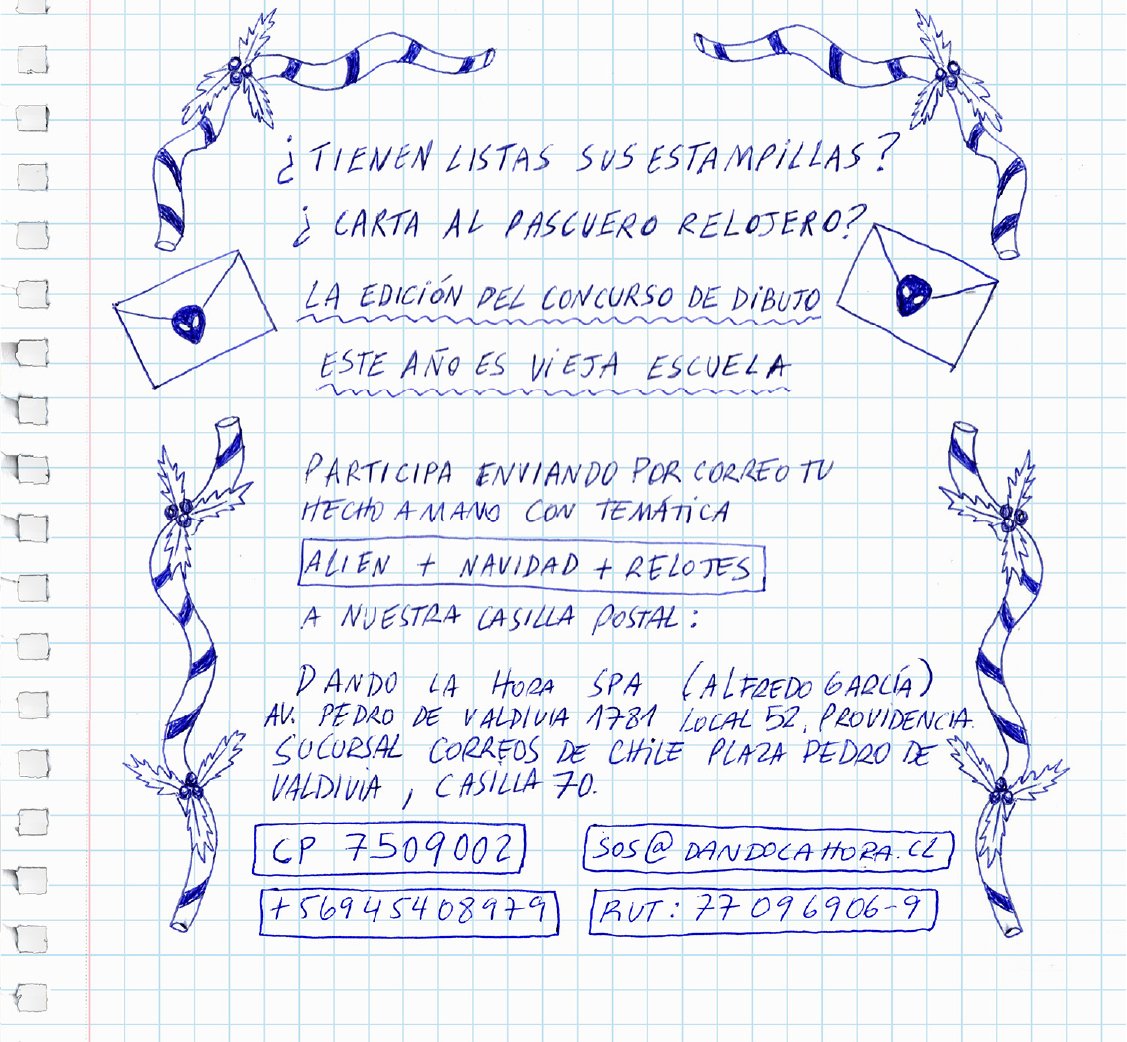 ¿TIENEN LISTAS SUS ESTAMPILLAS?
¿CARTA AL PASCUERO RELOJERO?
LA EDICIÓN DEL CONCURSO DE DIBUJO
ESTE AÑO ES VIEJA ESCUELA
PARTICIPA ENVIANDO POR CORREO TU
HECHO A MANO CON TEMÁTICA
ALIEN + NAVIDAD + RELOJES
A NUESTRA CASILLA POSTAL:
DANDO LA HORA SPA (ALFREDO GARCÍA)
AV. PEDRO DE VALDIVIA 1781 LOCAL 52, PROVIDENCIA.
SUCURSAL CORREOS DE CHILE PLAZA PEDRO DE
VALDIVIA, CASILLA 70.
CP 7509002
SOS@DANDOLAHORA.CL
+56945408979
RUT: 77096906-9